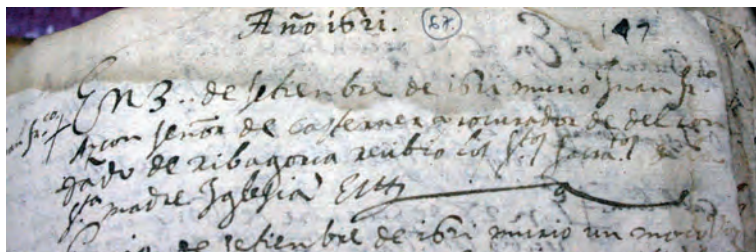 Año 1621. 67. 147
En 3.. de setienbre de 1621 murio Juan fr.co
Arcon señor de Casterner procurador de del con
dado de ribagorca recibio los s.tos sacra.tos
s.ta madre Iglesia
de setienbre de 1621 murio un